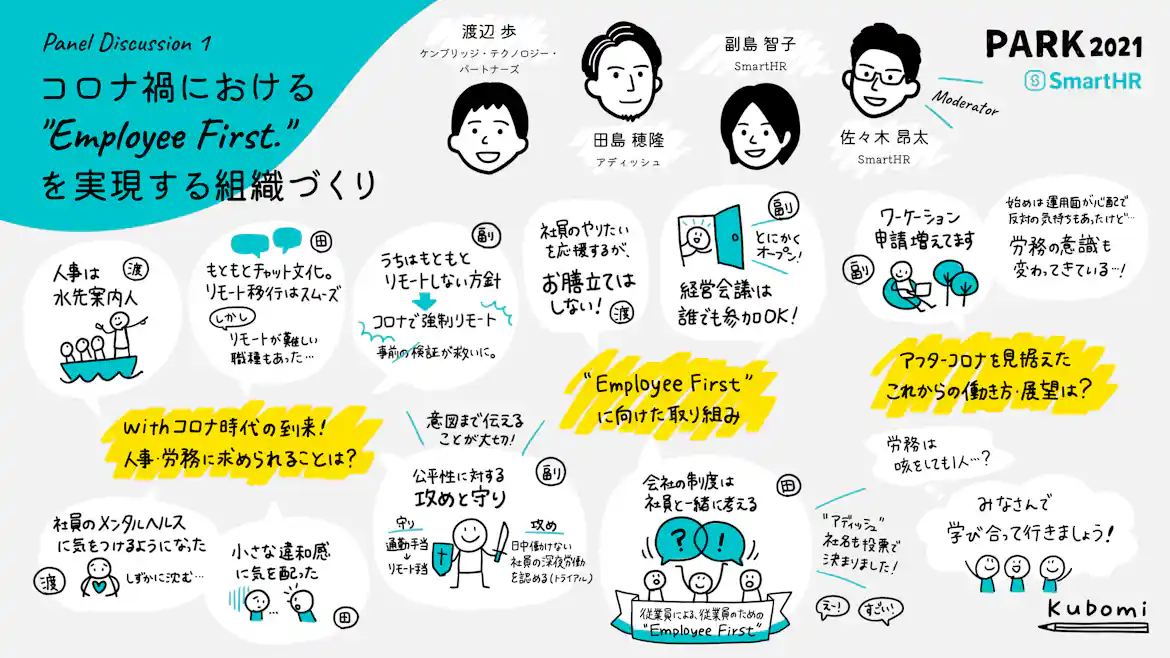 Panel Discussion 1
コロナ禍における
"Employee First."
を実現する組織づくり
渡辺 歩
ケンブリッジ・テクノロジー・
パートナーズ
田島 穂隆
アディッシュ
副島 智子
SmartHR
佐々木 昂太
SmartHR
Moderator
PARK 2021
SmartHR
人事は
水先案内人
渡
田
もともとチャット文化。
リモート移行はスムーズ
しかし
リモートが難しい
職種もあった…
副
うちはもともと
リモートしない方針
コロナで強制リモート
事前の検証が救いに。
withコロナ時代の到来!
人事・労務に求められることは?
社員のメンタルヘルス
に気をつけるようになった
渡
しずかに沈む…
小さな違和感
に気を配った
…
田
社員のやりたい
を応援するが、
お膳立ては
しない!
渡
副
とにかく
オープン!
経営会議は
誰でも参加OK!
"Employee First"
に向けた取り組み
意図まで伝える
ことが大切!
公平性に対する
攻めと守り
副
守り
通勤手当
リモート手当
攻め
日中働けない
社員の深夜労働
を認める(トライアル)
会社の制度は
社員と一緒に考える
田
?
!
従業員による、従業員のための
"Employee First"
"アディッシュ"
社名も投票で
決まりました!
えー!
すごい!
ワーケーション
申請増えてます
副
始めは運用面が心配で
反対の気持ちもあったけど…
労務の意識も
変わってきている…!
アフターコロナを見据えた
これからの働き方・展望は?
労務は
咳をしても1人…?
みなさんで
学び合って行きましょう!
Kubomi